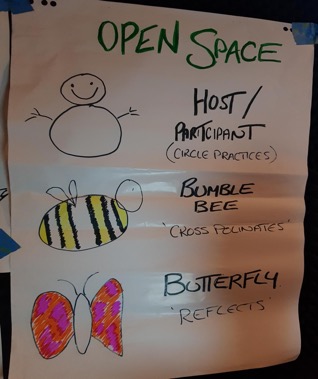 OPEN SPACE
HOST/
PARTICIPANT
(CIRCLE PRACTICES)
BUMBLE
BEE
'CROSS POLINATES'
BUTTERFLY
'REFLECTS'